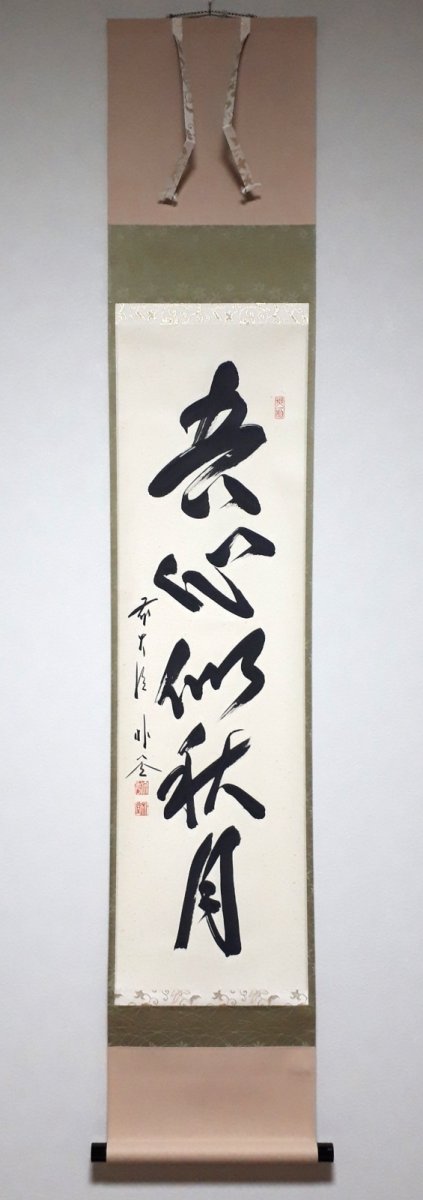 吾心似秋月
前大徳